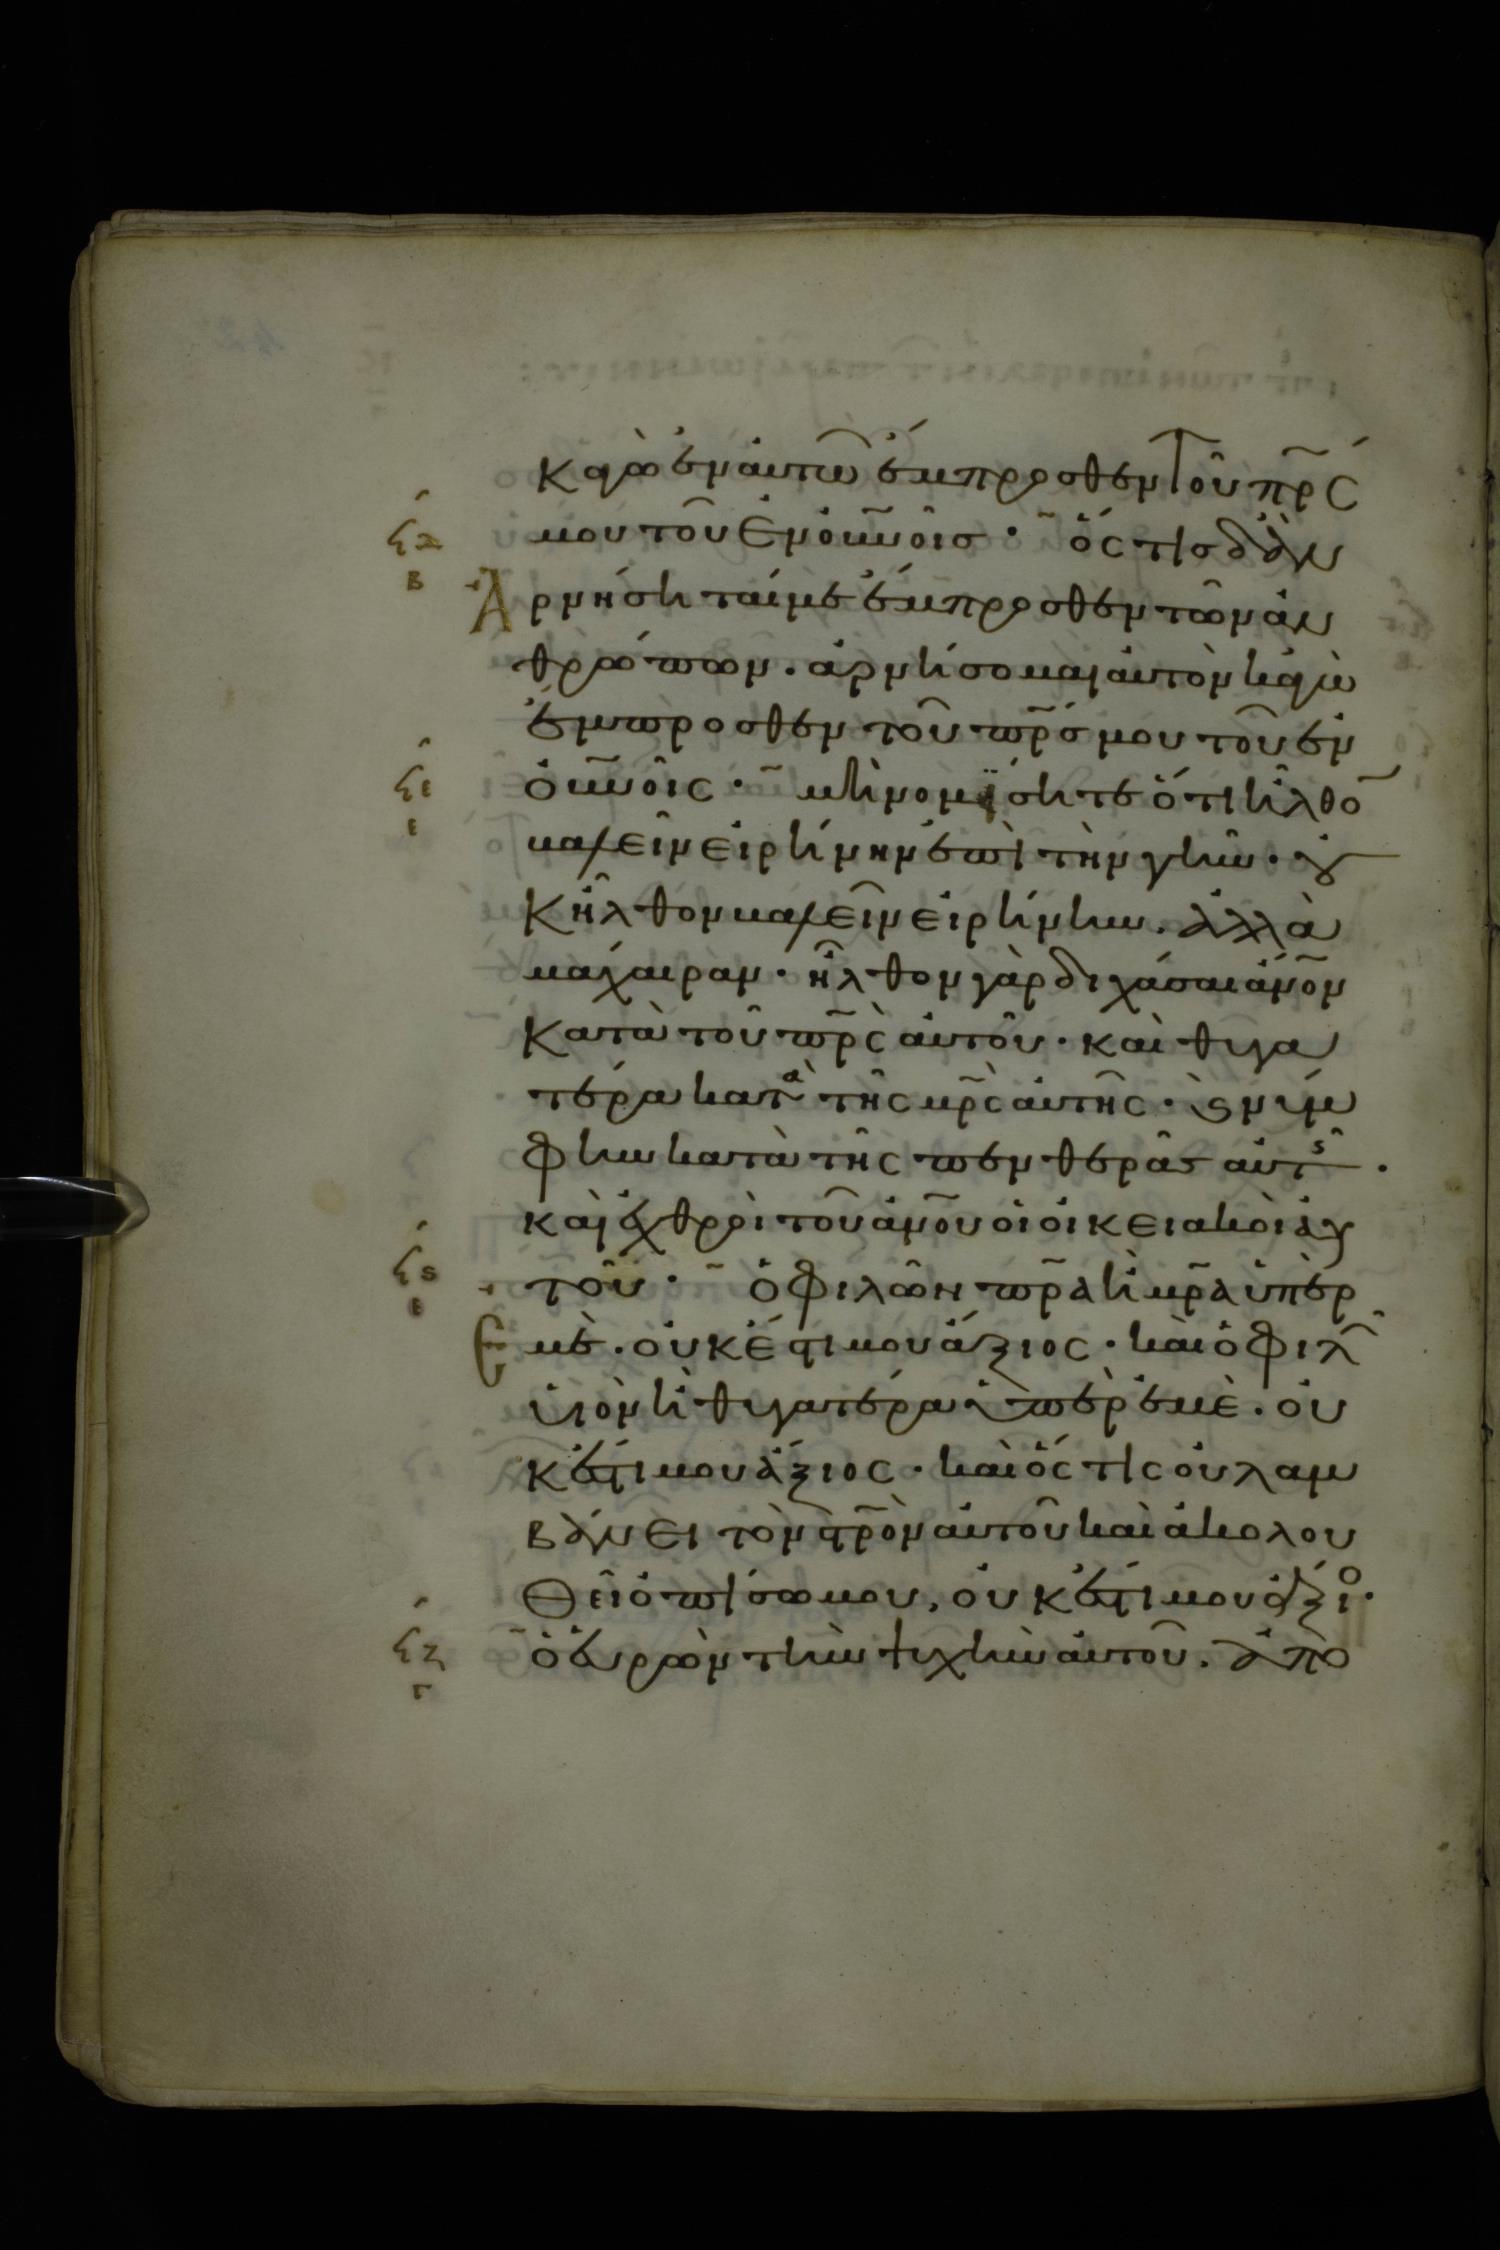 κἀγὼ ἐν αὐτῶ ἔμπροσθεν τοῦ πρ̅ς
μου τοῦ ἐν ο̅υ̅νοῖς · ὅστις δ' ἂν
ϟδ
β
ἀρνήσηταί με ἔμπροσθεν τῶν ἀν
θρώπων . ἀρνήσομαι αὐτὸν κἀγὼ
ἔμπροσθεν τοῦ πρ̅ς μου τοῦ ἐν
ϟε
ε
ο̅υ̅νοῖς · μὴ νομίσητε ὅτι ἦλθο̅
βαλεῖν εἰρήνην ἐπὶ τὴν γῆν · οὐ
κ ἦλθον βαλεῖν εἰρήνην . ἀλλὰ
μάχαιραν · ἦλθον γὰρ διχάσαι ἄν̅ον
κατὰ τοῦ πρ̅ς αὐτοῦ · καὶ θυγα
τέρα κατὰ τῆς μρ̅ς αὐτῆς · ϗ νύμ
φην κατὰ τῆς πενθερᾶς αὐτῆς ·
καὶ ἐχθροὶ τοῦ ἀν̅ου οἱ οἰκειακοὶ αὐ
ϟϛ
ε
τοῦ · ὁ φιλῶν πρ̅α ἢ μρ̅α ὑπὲρ
ἐμὲ . οὐκ ἔστι μου ἄξιος · καὶ ὁ φιλῶν
υἱὸν ἢ θυγατέρα ὑπὲρ ἐμὲ . οὐ
κ ἔστι μου ἄξιος · καὶ ὅστις οὐ λαμ
βάνει τὸν στρ̅ὸν αὐτοῦ καὶ ἀκολου
θεῖ ὀπίσω μου, οὐκ ἔστι μου ἄξιο ·
ϟζ
γ
ὁ εὑρὼν τὴν ψυχὴν αὐτοῦ . ἀπο